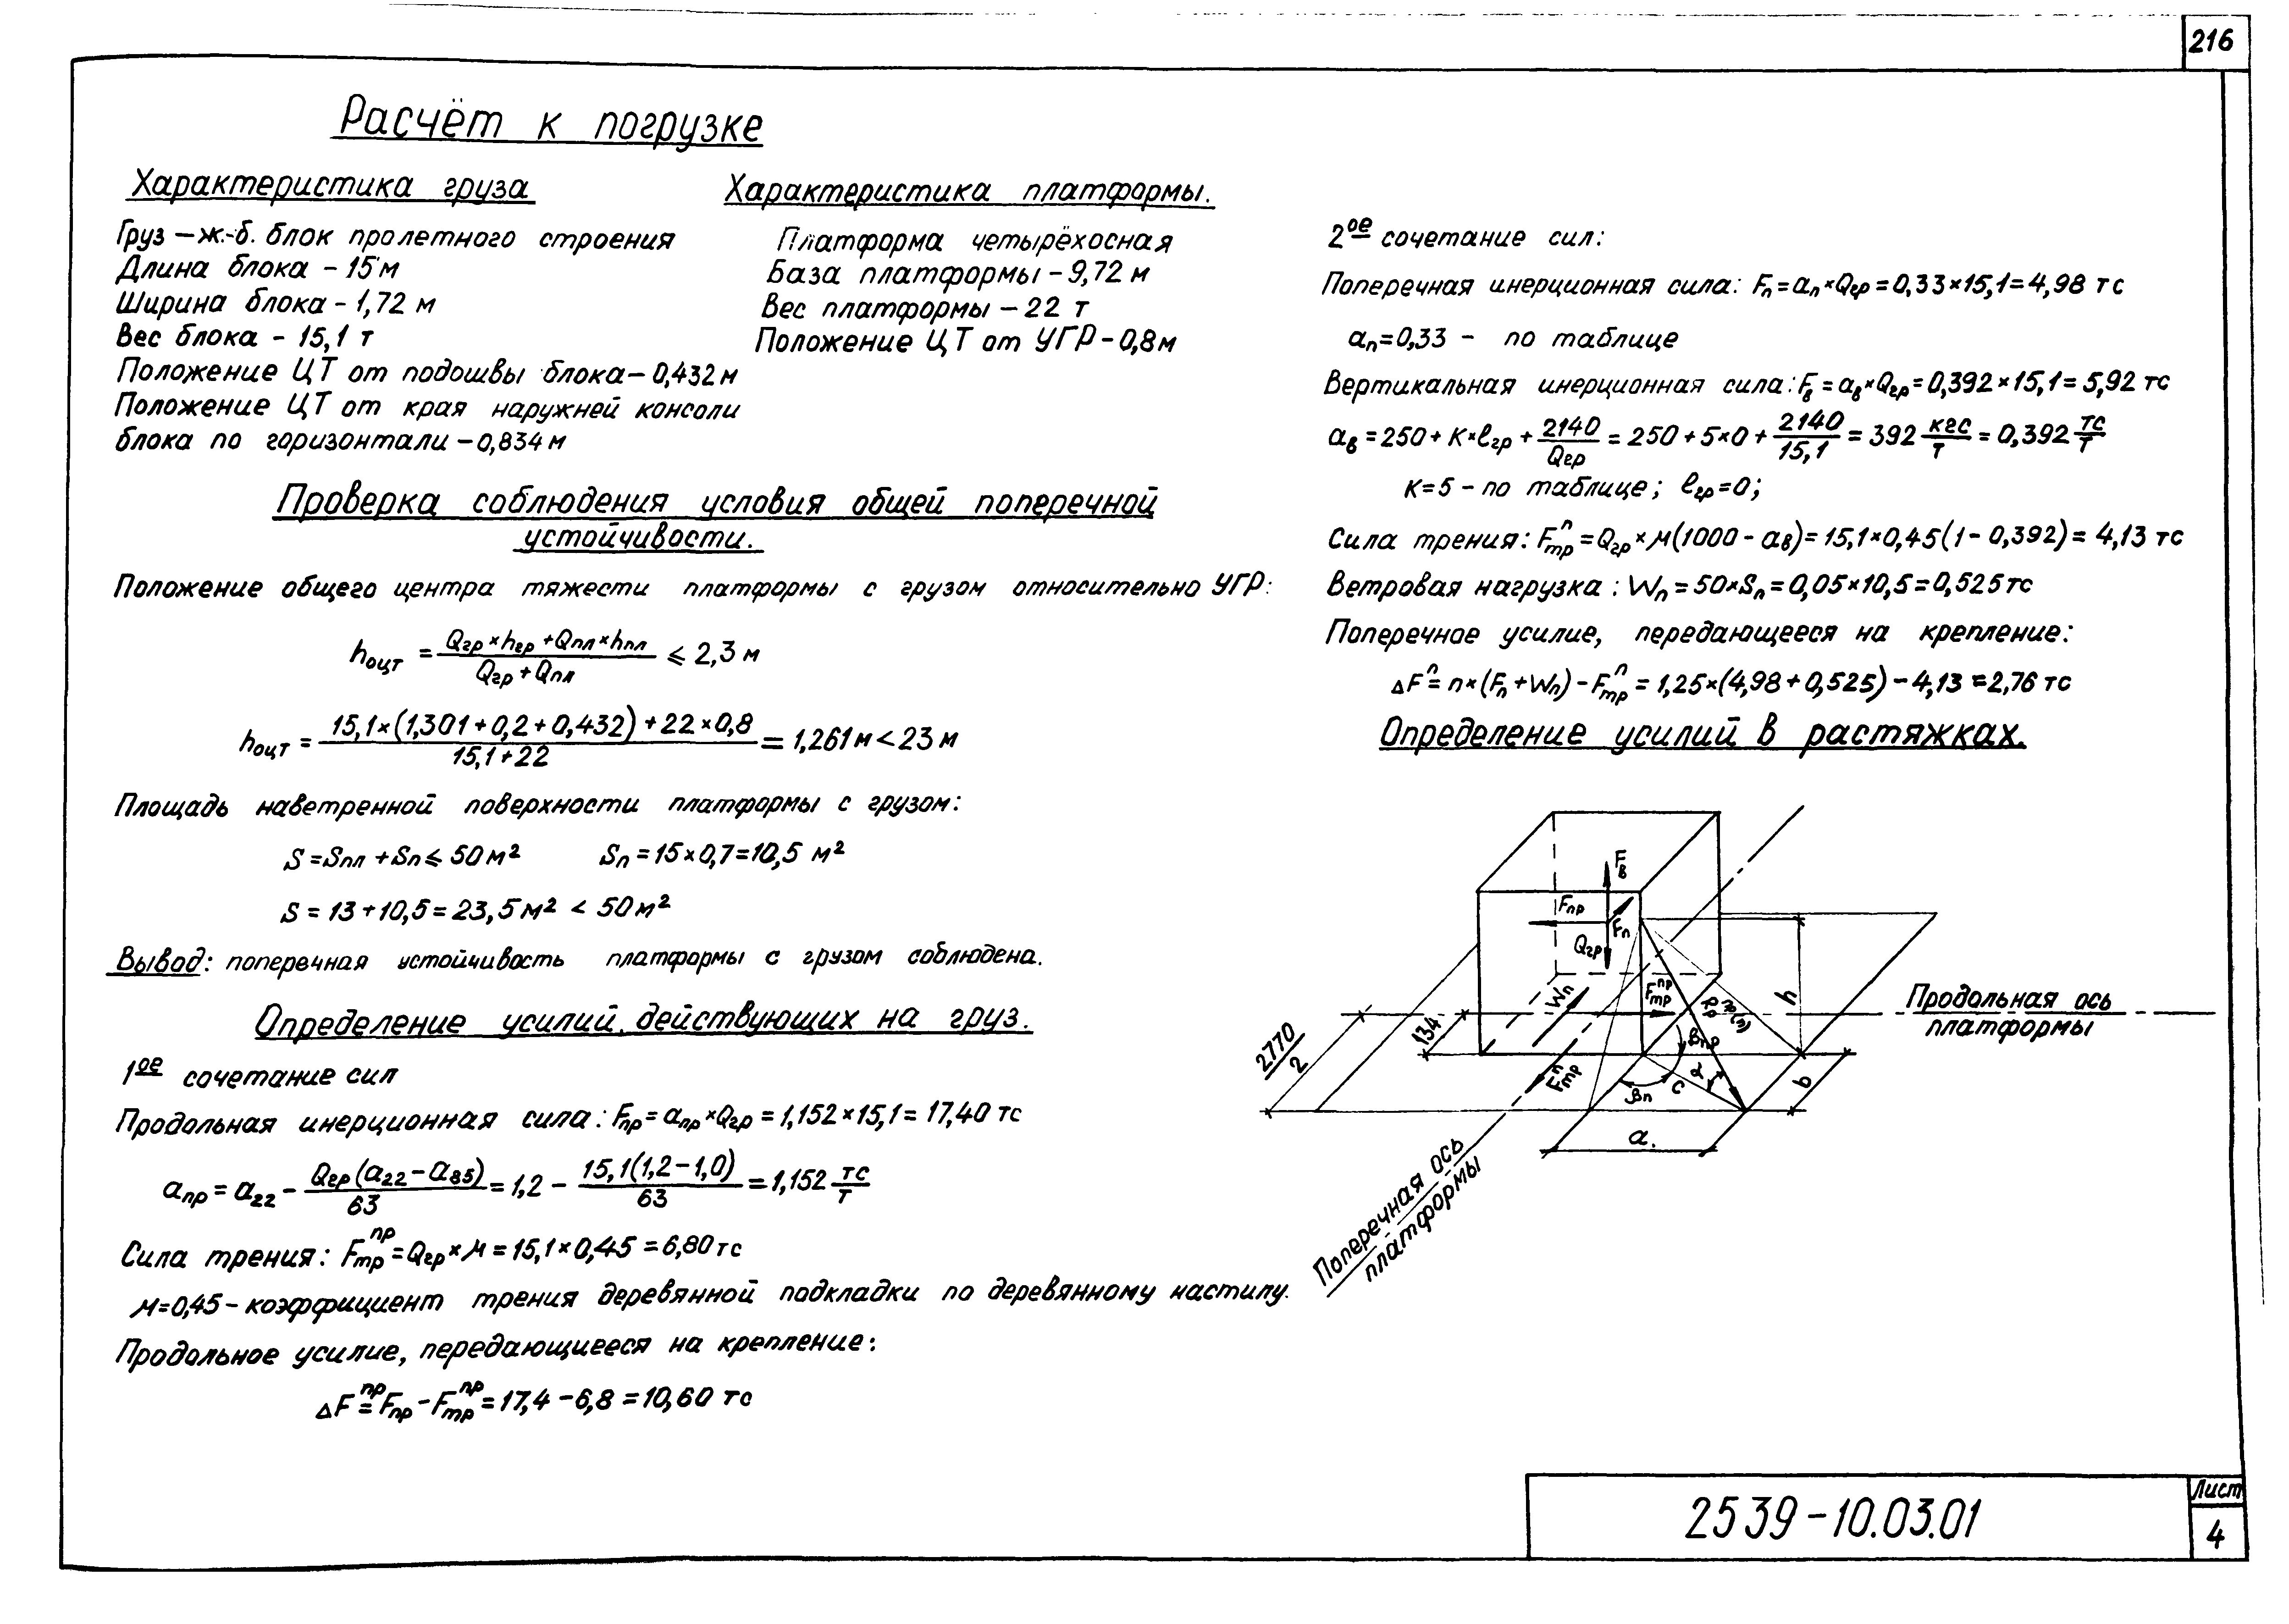 216
Расчёт к погрузке
Характеристика груза
Груз – ж.-б. блок пролетного строения
Длина блока – 15 м
Ширина блока – 1,72 м
Вес блока – 15,1 т
Положение ЦТ от подошвы блока – 0,432 м
Положение ЦТ от края наружней консоли
блока по горизонтали – 0,834 м
Характеристика платформы.
Платформа четырёхосная
База платформы – 9,72 м
Вес платформы – 22 т
Положение ЦТ от УГР – 0,8 м
Проверка соблюдения условия общей поперечной
устойчивости.
Положение общего центра тяжести платформы с грузом относительно УГР:
hоцт = (Qгр × hгр + Qпл × hпл) / (Qгр + Qпл) ≤ 2,3 м
hоцт = (15,1 × (1,301 + 0,2 + 0,432) + 22 × 0,8) / (15,1 + 22) = 1,261 м < 23 м
Площадь наветренной поверхности платформы с грузом:
S = Sпл + Sп ≤ 50 м² Sп = 15 × 0,7 = 10,5 м²
S = 13 + 10,5 = 23,5 м² < 50 м²
Вывод: поперечная устойчивость платформы с грузом соблюдена.
Определение усилий, действующих на груз.
1ое сочетание сил
Продольная инерционная сила: Fпр = aпр × Qгр = 1,152 × 15,1 = 17,40 тс
aпр = a22 – Qгр (a22 – a85) / 63 = 1,2 – 15,1 (1,2 – 1,0) / 63 = 1,152 тс/т
Сила трения: Fтр^пр = Qгр × μ = 15,1 × 0,45 = 6,80 тс
μ = 0,45 – коэффициент трения деревянной подкладки по деревянному настилу.
Продольное усилие, передающиееся на крепление:
ΔF^пр = Fпр – Fтр^пр = 17,4 – 6,8 = 10,60 тс
2ое сочетание сил:
Поперечная инерционная сила: Fп = aп × Qгр = 0,33 × 15,1 = 4,98 тс
aп = 0,33 – по таблице
Вертикальная инерционная сила: Fв = aв × Qгр = 0,392 × 15,1 = 5,92 тс
aв = 250 + K × ℓгр + 2140/Qгр = 250 + 5 × 0 + 2140/15,1 = 392 кгс/т = 0,392 тс/т
K = 5 – по таблице; ℓгр = 0;
Сила трения: Fтр^п = Qгр × μ (1000 – aв) = 15,1 × 0,45 (1 – 0,392) = 4,13 тс
Ветровая нагрузка: Wп = 50 × Sп = 0,05 × 10,5 = 0,525 тс
Поперечное усилие, передающееся на крепление:
ΔF^п = n × (Fп + Wп) – Fтр^п = 1,25 × (4,98 + 0,525) – 4,13 = 2,76 тс
Определение усилий в растяжках.
Fв
Fпр
Fп
Qгр
Wп
Fтр^пр
h
Продольная ось
платформы
134
2770/2
Fтр^п
βпр
α
βп
c
b
a.
Поперечная ось
платформы
2539-10.03.01
Лист
4